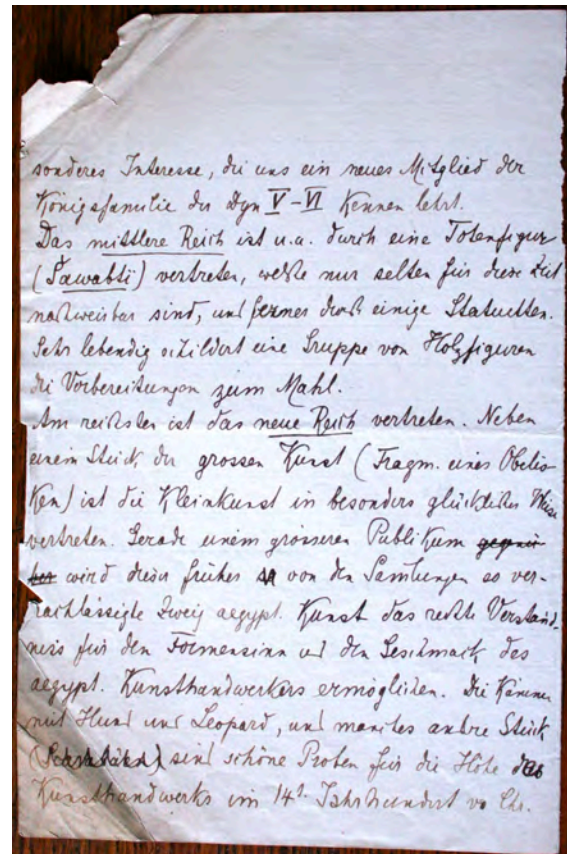 sonderes Interesse, die uns ein neues Mitglied der
Königsfamilie der Dyn V-VI kennen lehrt.
Das mittlere Reich ist u.a. durch eine Totenfigur
(Šawabti) vertreten, welche nur selten für diese Zeit
nachweisbar sind, und ferner durch einige Statuetten.
Sehr lebendig schildert eine Gruppe von Holzfiguren
die Vorbereitungen zum Mahl.
Am reichsten ist das neue Reich vertreten. Neben
einem Stück der grossen Kunst (Fragm. eines Obelis-
ken) ist die Kleinkunst in besonders glücklicher Weise
vertreten. Gerade einem grösseren Publikum
wird dieser früher von den Samlungen so ver-
nachlässigte Zweig aegypt. Kunst das rechte Verständ-
niss für den Formensinn und den Geschmack des
aegypt. Kunsthandwerkers ermöglichen. Die Kämme
mit Hund und Leopard, und manches andre Stück
sind schöne Proben für die Höhe des
Kunsthandwerks im 14t. Jahrhundert vo Chr.